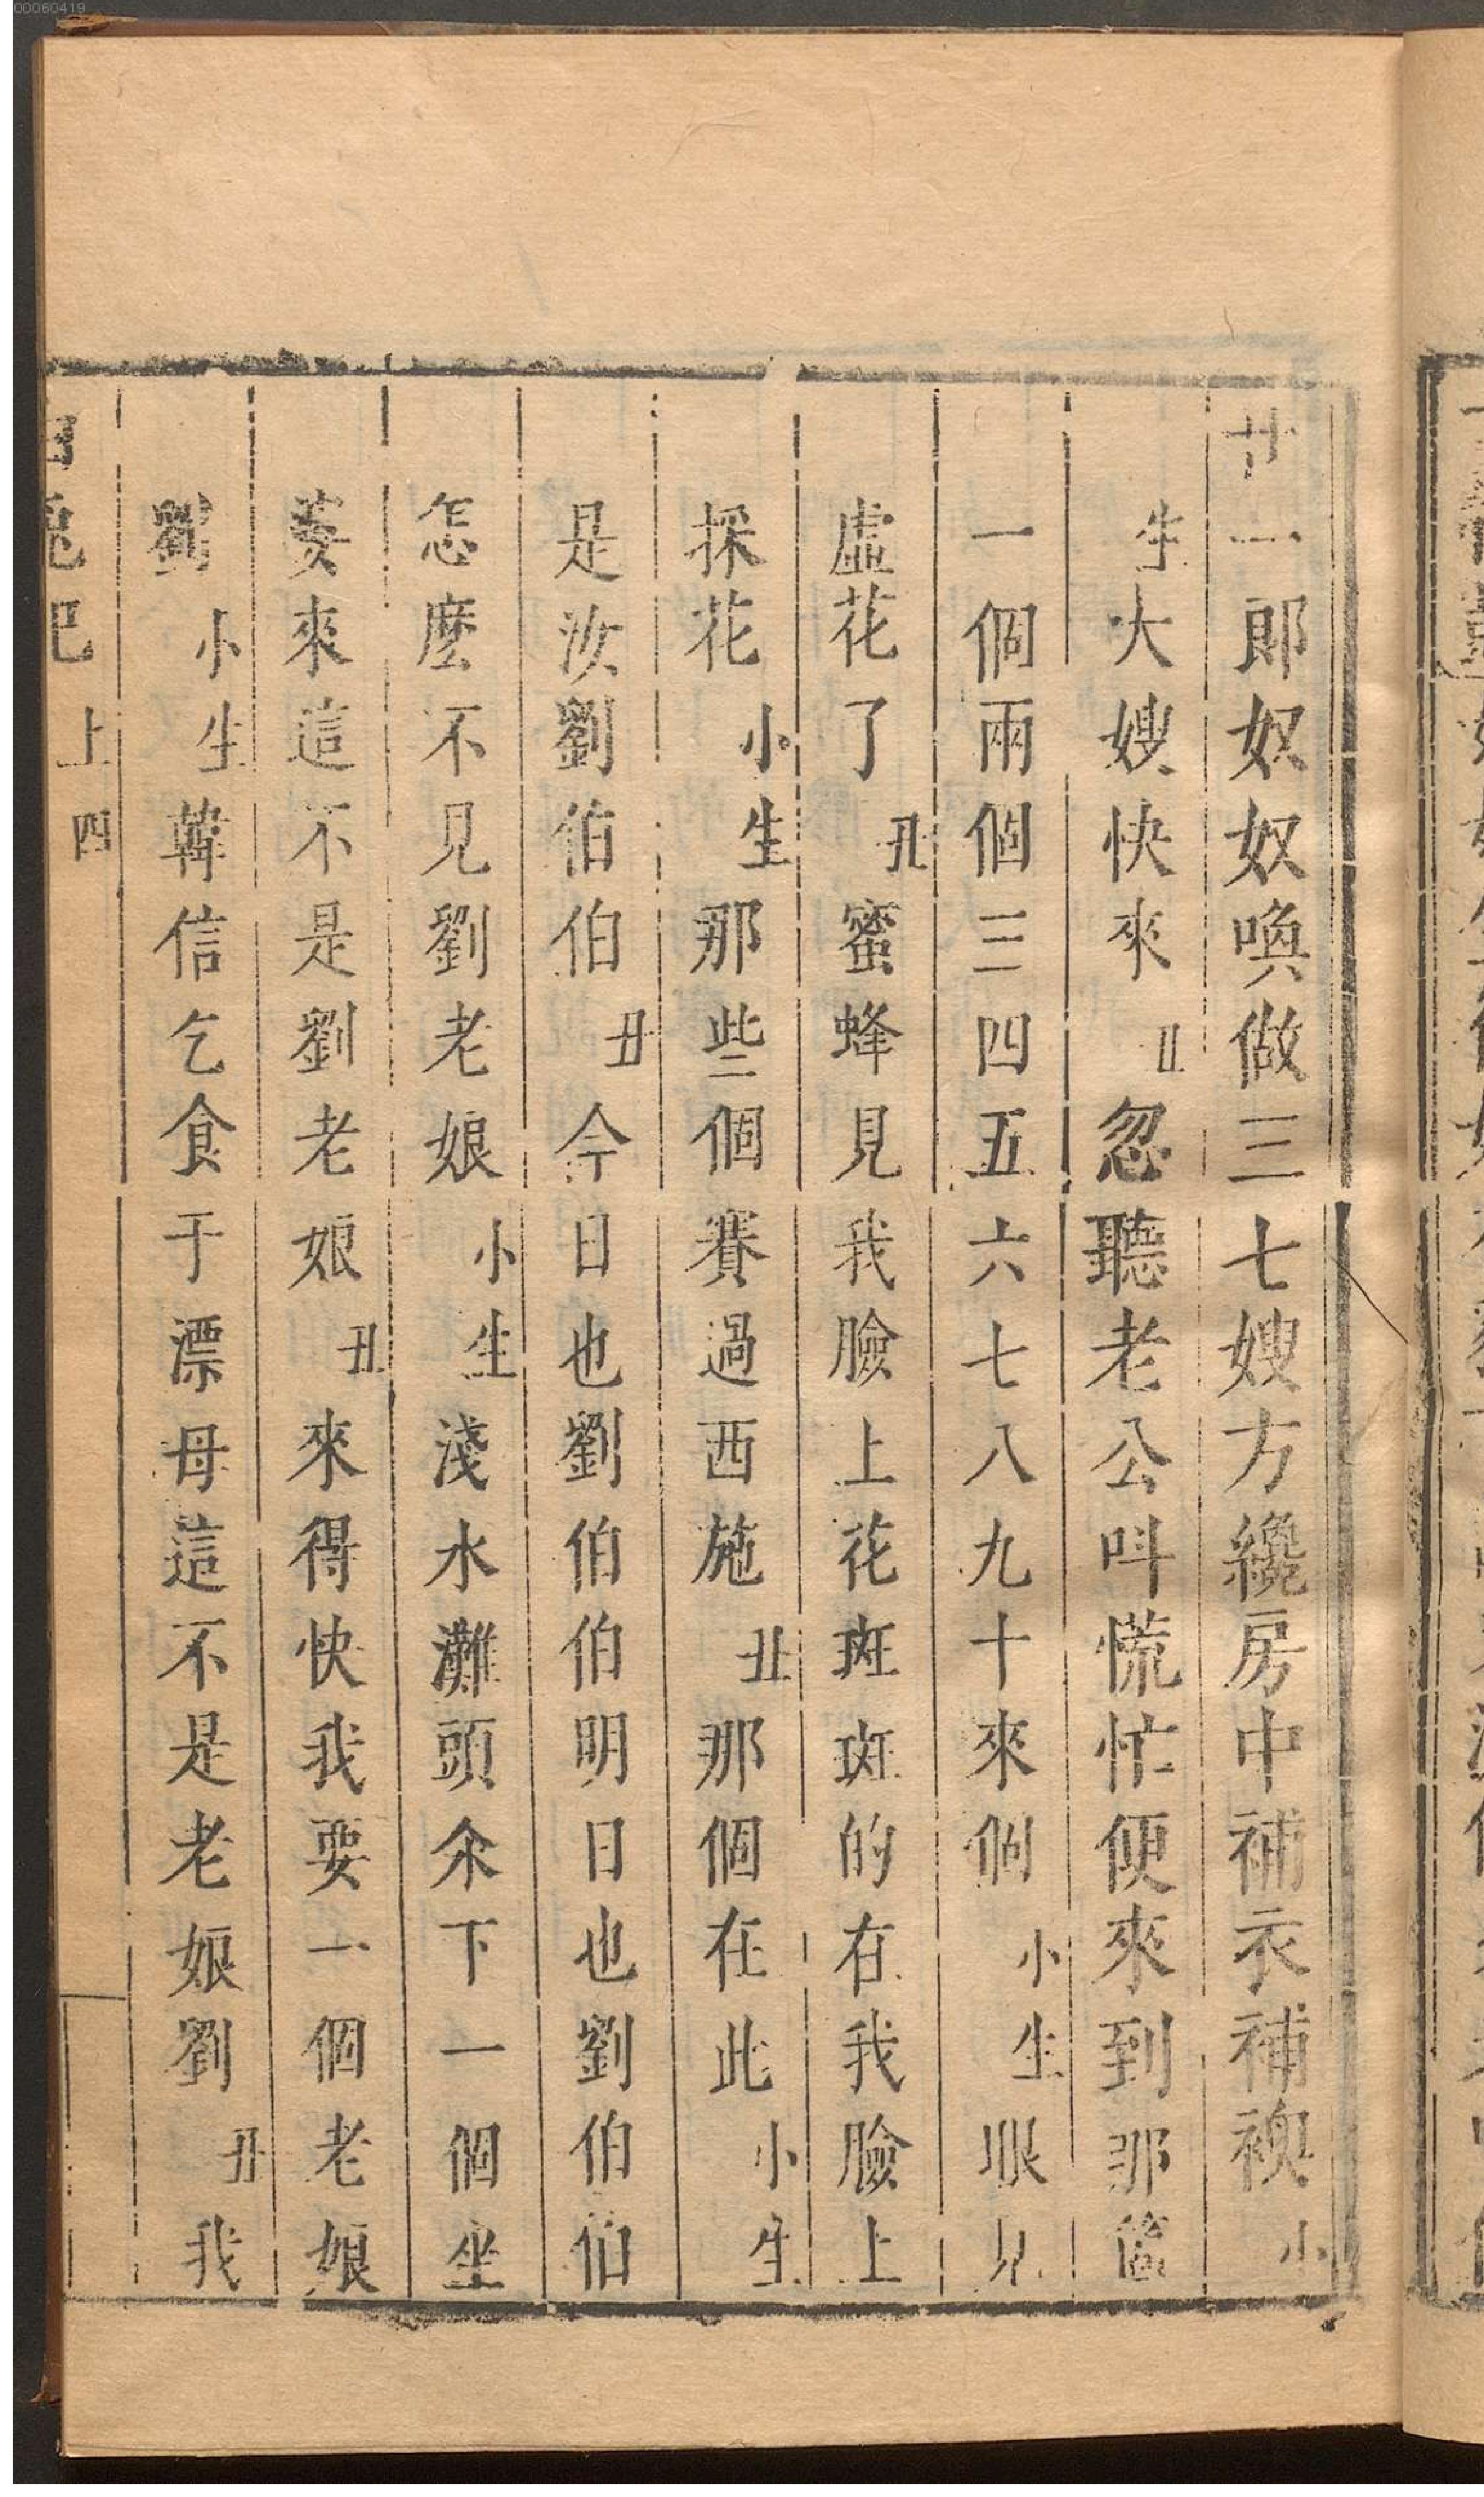 00060419
廿一郎奴奴喚做三七嫂方纔房中補衣補襖小
生大嫂快來丑忽聽老公叫慌忙便來到那箇
一個兩個三四五六七八九十來個小生眼見
虛花了丑蜜蜂見我臉上花斑斑的在我臉上
採花小生那些個賽過西施丑那個在此小生
是汝劉伯伯丑今日也劉伯伯明日也劉伯伯
怎麽不見劉老娘小生淺水灘頭氽下一個坐
婆來這不是劉老娘丑來得快我要一個老娘
劉小生韓信乞食于漂母這不是老娘劉丑我
白兔記 上 四